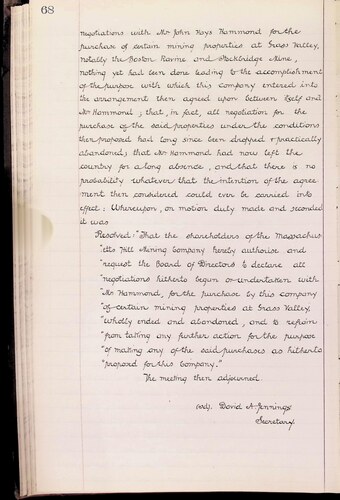 68
negotiations with Mr John Hays Hammond for the
purchase of certain mining properties at Grass Valley,
notably the Boston Ravine and Stockbridge Mine,
nothing yet had been done leading to the accomplishment
of the purpose with which this company entered into
the arrangement then agreed upon between itself and
Mr Hammond; that, in fact, all negotiation for the
purchase of the said properties under the conditions
then proposed had long since been dropped & practically
abandoned; that Mr Hammond had now left the
country for a long absence, and that there is no
probability whatever that the intention of the agree
ment then considered could ever be carried into
effect: Whereupon, on motion duly made and seconded
it was
Resolved: "That the shareholders of the Massachus
"etts Hill Mining Company hereby authorise and
"request the Board of Directors to declare all
"negotiations hitherto begun or undertaken with
"Mr Hammond, for the purchase by this company
"of certain mining properties at Grass Valley,
"wholly ended and abandoned, and to refrain
"from taking any further action for the purpose
"of making any of the said purchases as hitherto
"proposed for this Company."
The meeting then adjourned
(sgd). David A. Jennings
Secretary